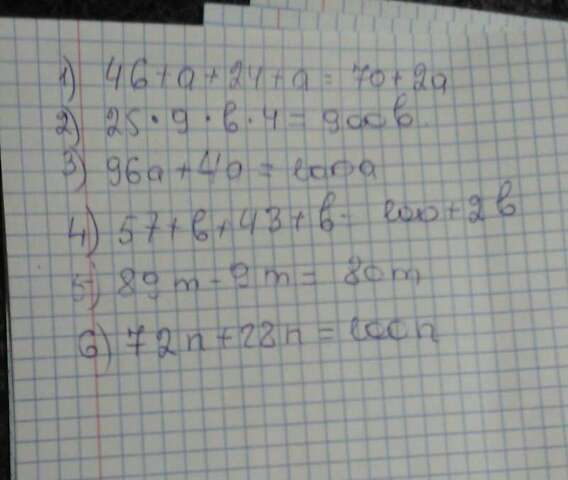 1) 46+а+24+а=70+2а
2) 25•9•в•4=900в.
3) 96а+4а=100а
4) 57+в+43+в=100+2в
5) 89m-9m=80m
6) 72n+28n=100n